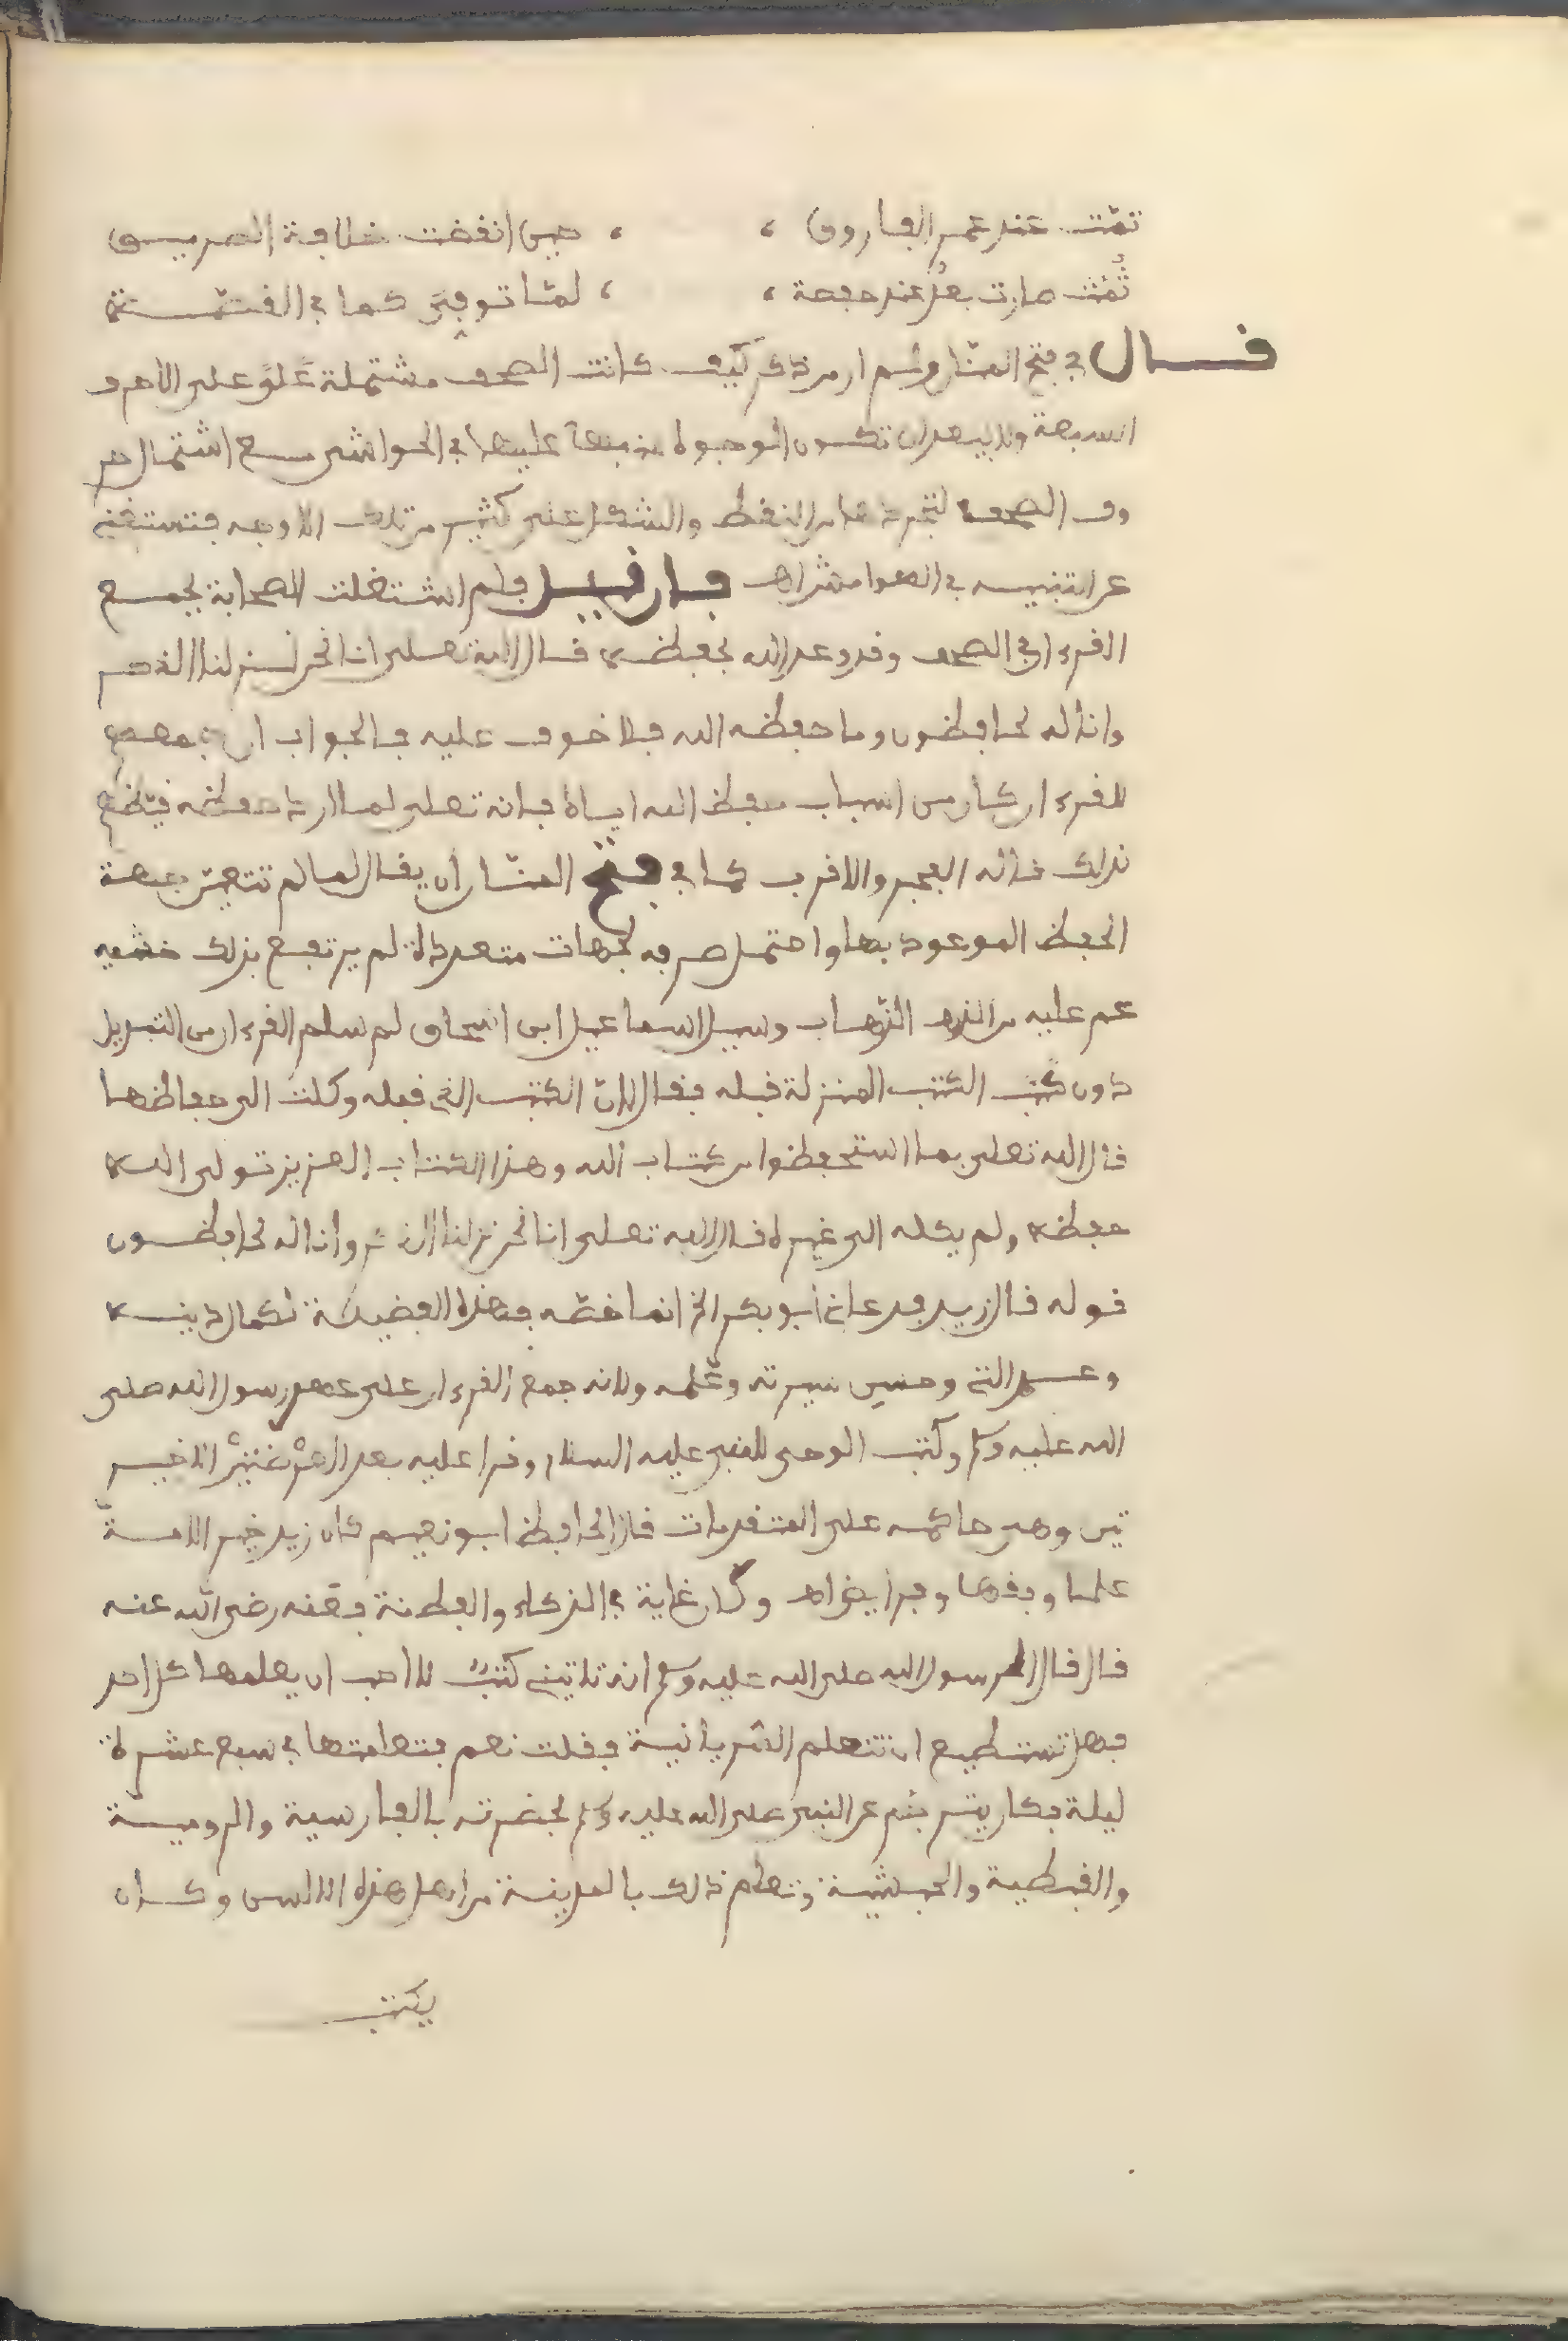 تمت عند عمر الفاروق ، ، حين انقضت خلافة الصديق
ثُمَّت صارت بعدُ عند حفصة ، ، لما توفي كما في القصة
قال في فتح المنان ولم ار من ذكر كيف كانت الصحف مشتملة على الاحرف
السبعة ولا يبعد ان تكون الوجوه منبها عليها في الحواشي مع اشتمال حر
وف الصحف لتجردها من النقط والشكل على كثير من تلك الاوجه فتستغني
عن التنبيه في الهوامش اهـ فان قيل فلم اشتغلت الصحابة بجمع
القرءان في الصحف وقد وعد الله بحفظه قال الله تعلى انا نحن نزلنا الذكر
وانا له لحافظون وما حفظه الله فلا خوف عليه فالجواب ان جمعهم
للقرءان كان من اسباب حفظ الله اياه فانه تعلى لما اراد حفظه قيظهم
لذلك قاله الفخر والاقرب كما في فتح المنان أن يقال لما لم تتعين جهة
الحفظ الموعود بها واحتمل صرفه لجهات متعددة لم يرتفع بذلك خشية
عمر عليه من الذهاب وسيل اسماعيل ابن اسحاق لم سلم القرءان من التبديل
دون الكتب المنزلة قبله فقال لان الكتب التي قبله وكلت الى حفاظها
قال الله تعلى بما استحفظوا من كتاب الله وهذا الكتاب العزيز تولى الله
حفظه ولم يكله الى غيره قال الله تعلى انا نحن نزلنا الذكر وانا له لحافظون
قوله قال زيد فدعاني أبو بكر الخ انما خصه بهذه الفضيلة لكمال دينه
وعدالته وحسن سيرته وعلمه ولانه جمع القرءان على عهد رسول الله صلى
الله عليه وسلم وكتب الوحي للنبي عليه السلام وقرا عليه بعد العرضتين الاخير
تين وهي حاكمة على المتقدمات قال الحافظ ابو نعيم كان زيد خير الامة
علما وفقها وفرايض اهـ وكان غاية في الذكاء والفطنة فعنه رضي الله عنه
قال قال لي رسول الله صلى الله عليه وسلم انه تاتيني كتبٌ لا احب ان يعلمها كل احد
فهل تستطيع ان تتعلم السريانية فقلت نعم فتعلمتها في سبع عشرة
ليلة فكان يترجم عن النبي صلى الله عليه وسلم بحضرته بالفارسية والرومية
والقبطية والحبشية وتعلم ذلك بالمدينة من اهل هذه الالسن وكان
يكتب